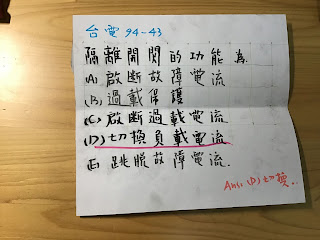 台電 94-43
隔離開関的功能為
(A) 啟斷故障電流
(B) 過載保護
(C) 啟斷過載電流
(D) 切換負載電流
(E) 跳脫故障電流.
Ans: (D) 切換.